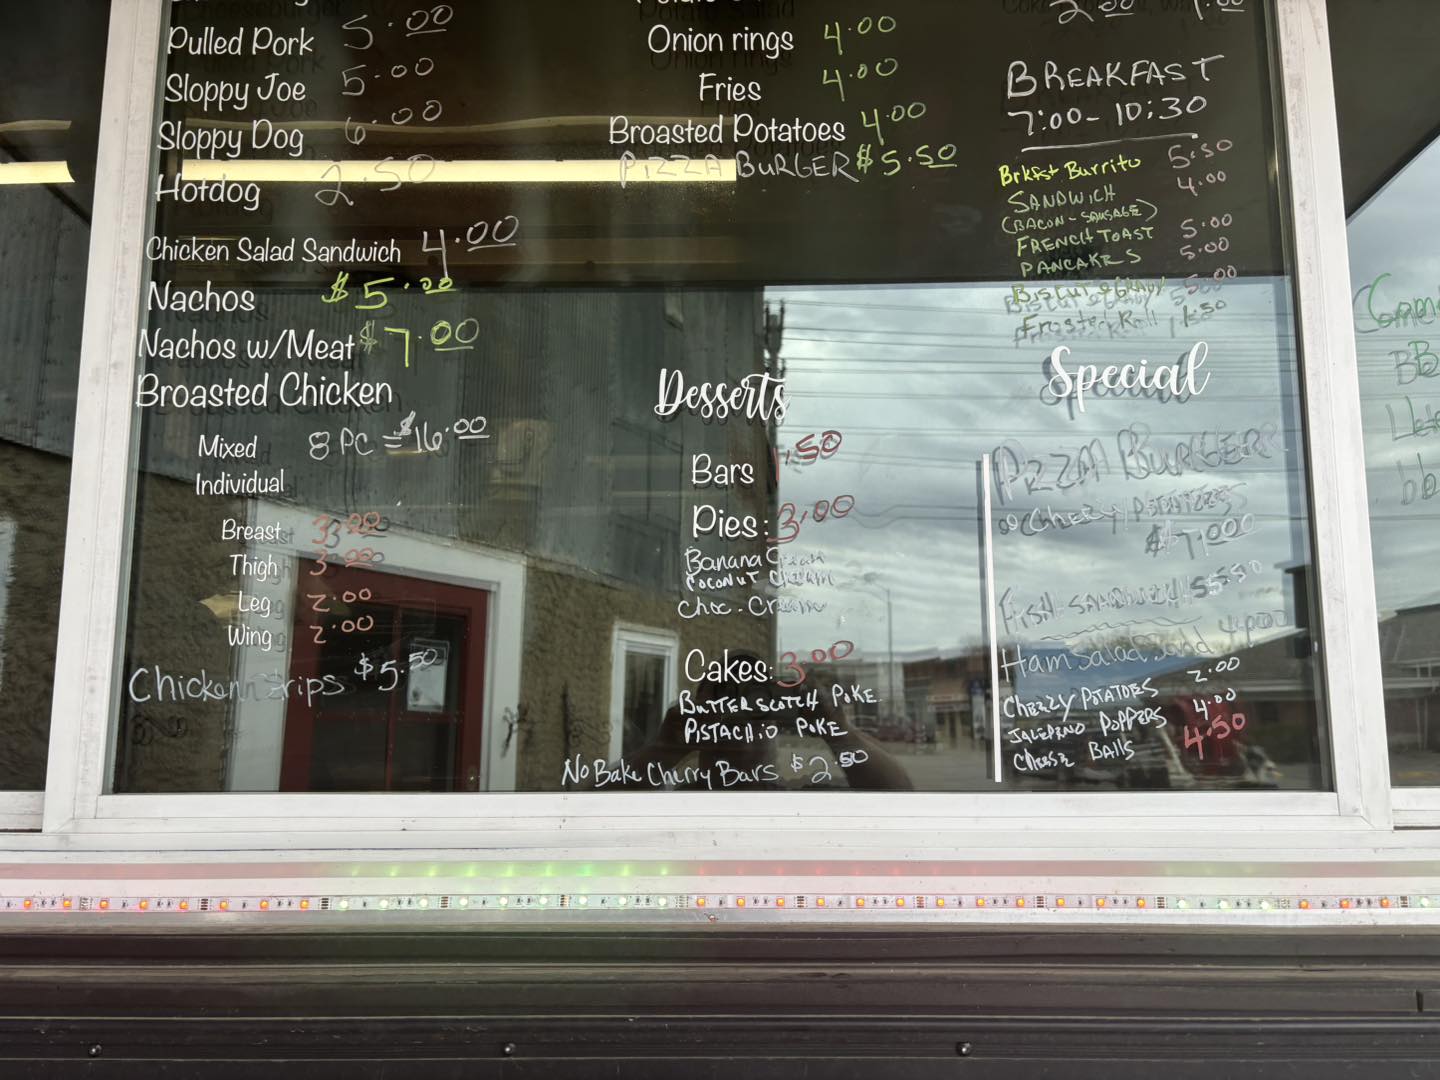 Pulled Pork 5.00
Sloppy Joe 5.00
Sloppy Dog 6.00
Hotdog 2.50
Chicken Salad Sandwich 4.00
Nachos $5.00
Nachos w/Meat $7.00
Broasted Chicken
Mixed 8 PC = $16.00
Individual
Breast 3.00
Thigh 3.00
Leg 2.00
Wing 2.00
Chicken Strips $5.50
Onion rings 4.00
Fries 4.00
Broasted Potatoes 4.00
PIZZA BURGER $5.50
Desserts
Bars 1.50
Pies: 3.00
Banana Cream
COCONUT CREAM
CHOC. CREAM
Cakes: 3.00
BUTTERSCOTCH POKE
PISTACHIO POKE
NO BAKE CHERRY BARS $2.50
2.00 1.00
BREAKFAST
7:00-10:30
Brkfst Burrito 5.50
SANDWICH 4.00
(BACON-SAUSAGE)
FRENCH TOAST 5.00
PANCAKES 5.00
BISCUT & GRAVY 5.00
Frosted Roll 1.50
Special
PIZZA BURGER
$7.00
FISH SANDWICH 5.50
Ham salad Sand 4.00
CHEEZY POTATOES 2.00
JALEPENO POPPERS 4.00
CHEESE BALLS 4.50